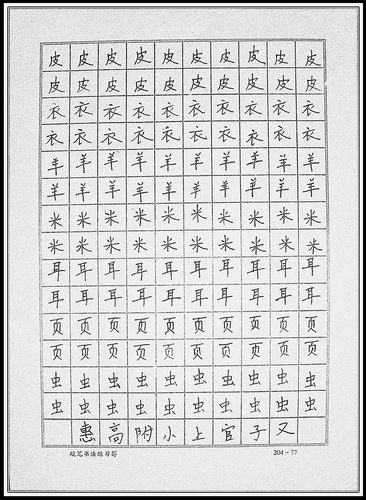 皮皮皮皮皮皮皮皮皮皮
皮皮皮皮皮皮皮皮皮皮
衣衣衣衣衣衣衣衣衣衣
衣衣衣衣衣衣衣衣衣衣
羊羊羊羊羊羊羊羊羊羊
羊羊羊羊羊羊羊羊羊羊
米米米米米米米米米米
米米米米米米米米米米
耳耳耳耳耳耳耳耳耳耳
耳耳耳耳耳耳耳耳耳耳
页页页页页页页页页页
页页页页页页页页页页
虫虫虫虫虫虫虫虫虫虫
虫虫虫虫虫虫虫虫虫虫
惠高附小上官子又
硬笔书法练习部 204-77